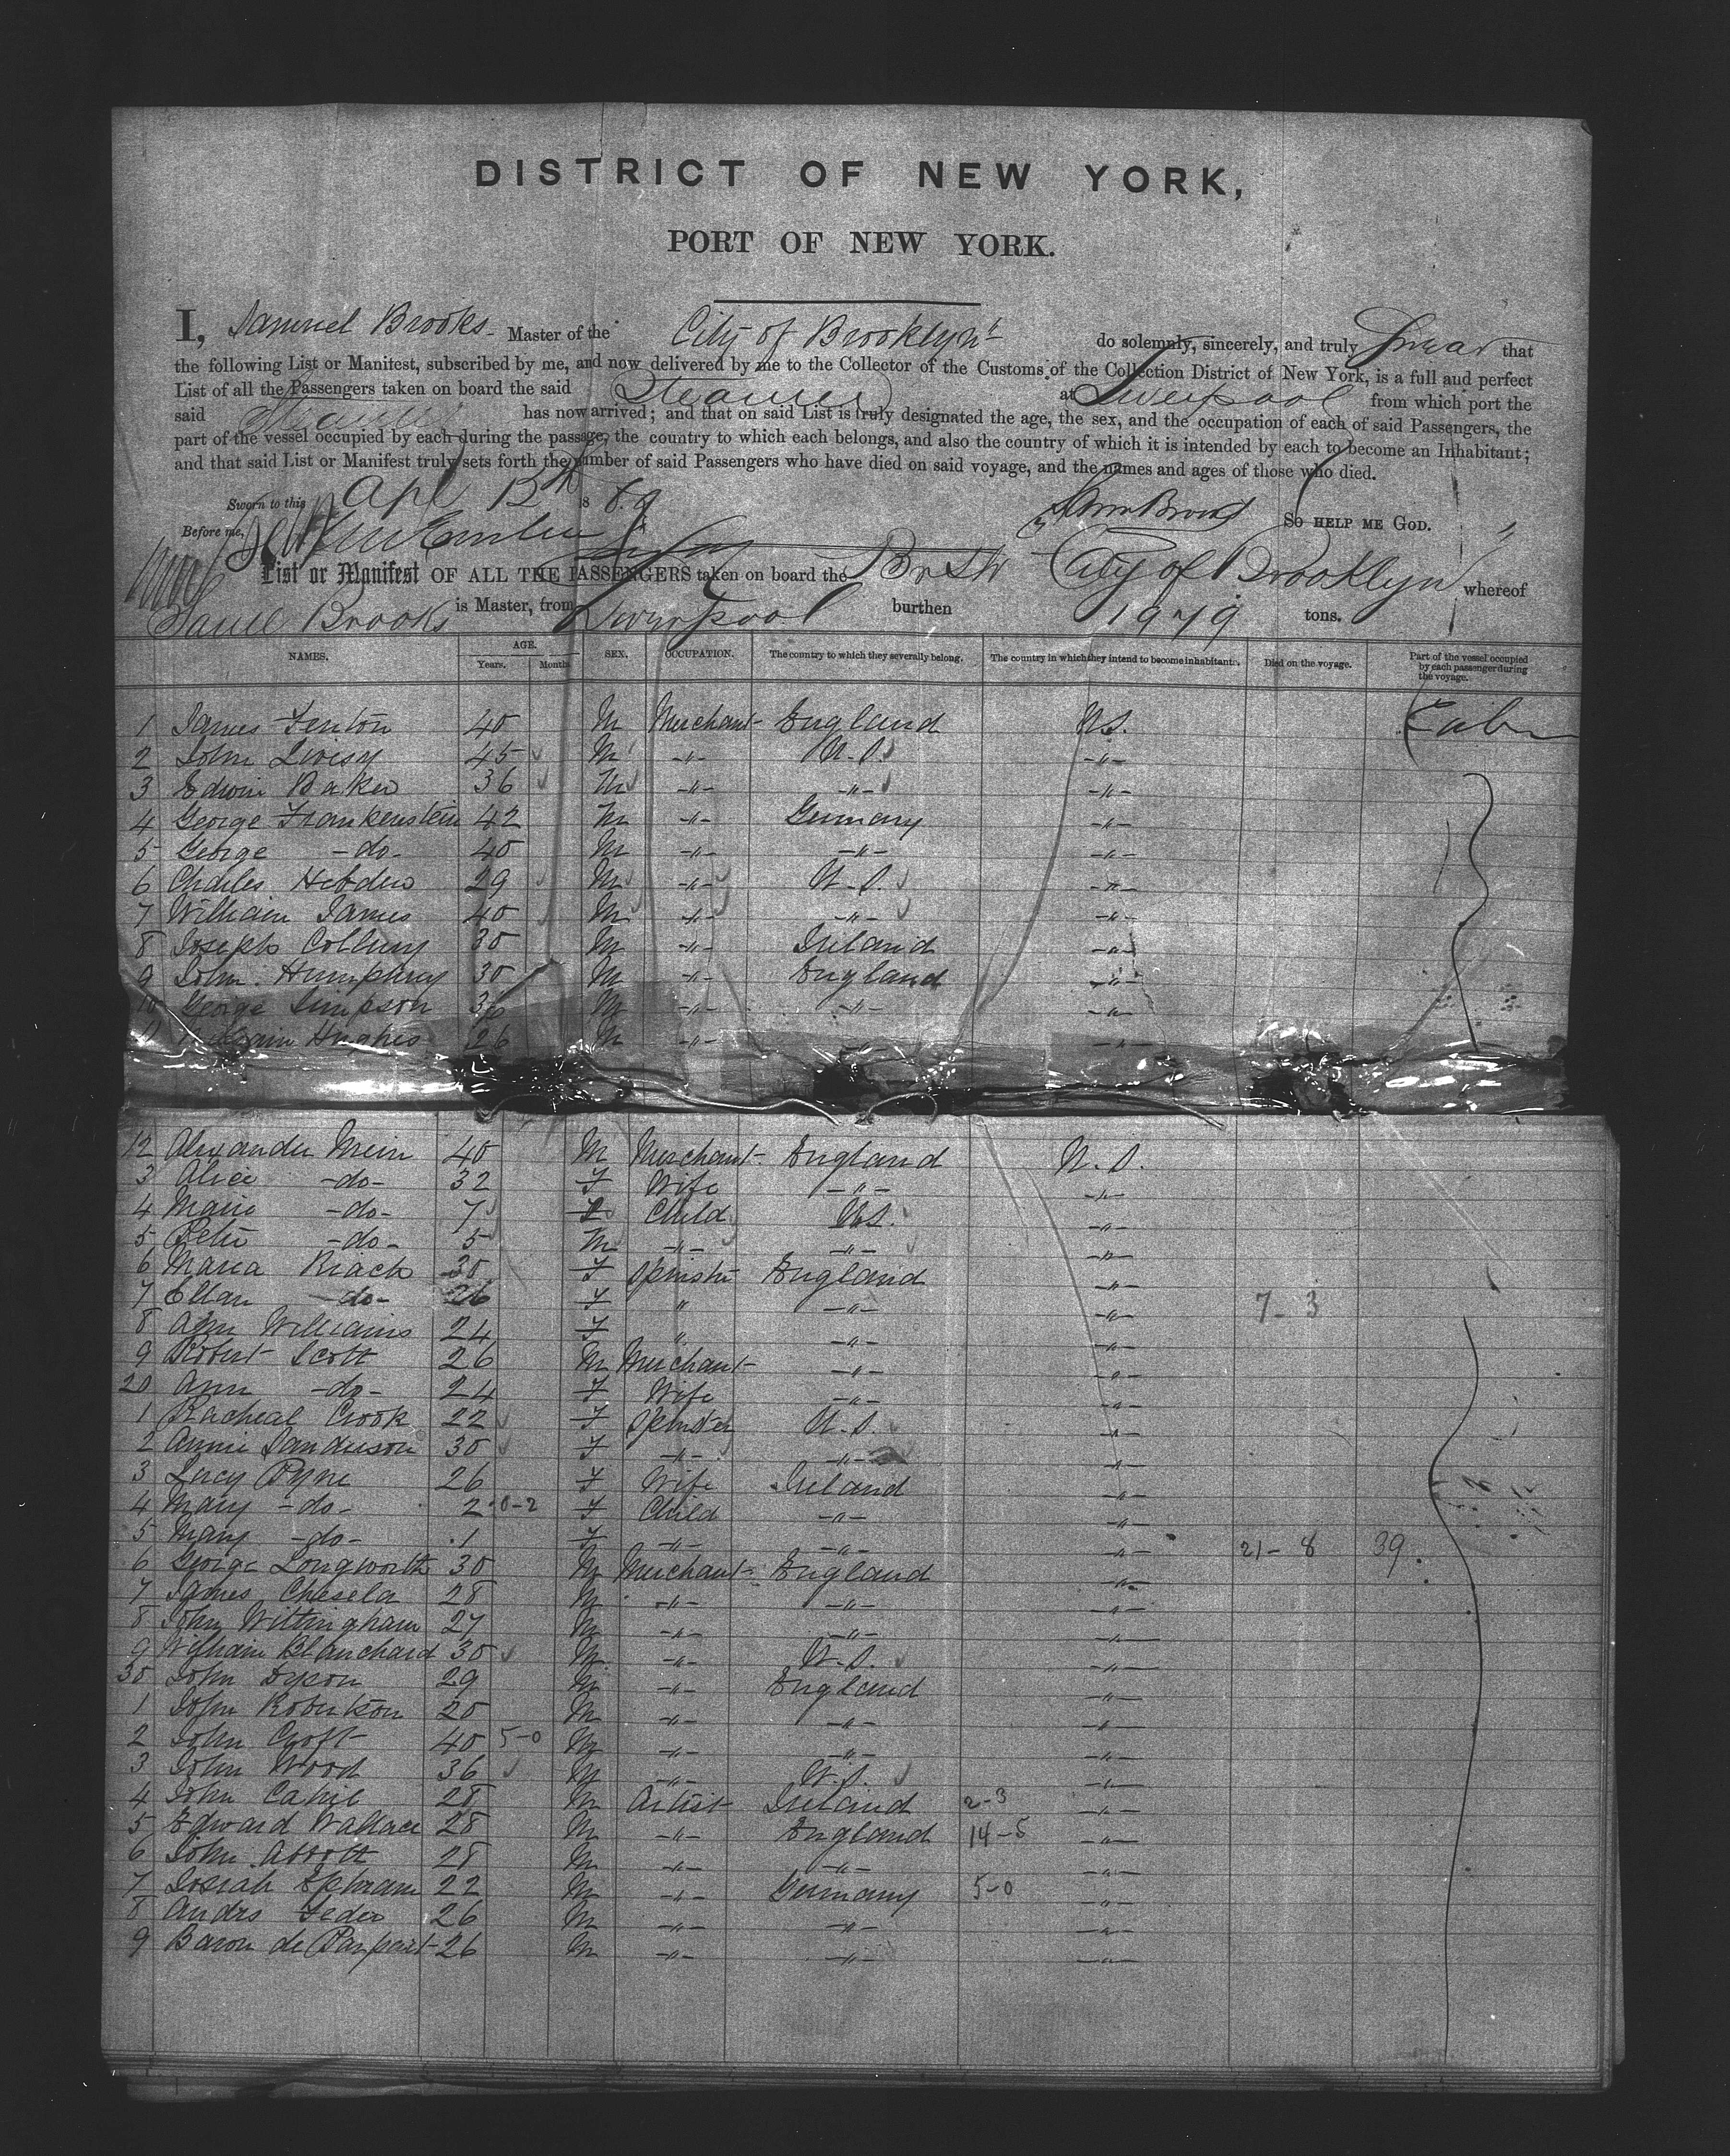 DISTRICT OF NEW YORK,
PORT OF NEW YORK.
I, Samuel Brooks Master of the City of Brooklyn do solemnly, sincerely, and truly Swear that
the following List or Manifest, subscribed by me, and now delivered by me to the Collector of the Customs of the Collection District of New York, is a full and perfect
List of all the Passengers taken on board the said Steamer at Liverpool from which port the
said Steamer has now arrived; and that on said List is truly designated the age, the sex, and the occupation of each of said Passengers, the
part of the vessel occupied by each during the passage, the country to which each belongs, and also the country of which it is intended by each to become an Inhabitant;
and that said List or Manifest truly sets forth the number of said Passengers who have died on said voyage, and the names and ages of those who died.
Sworn to this Apl 12th 1869 Saml Brooks So HELP ME GOD.
Before me,
List or Manifest OF ALL THE PASSENGERS taken on board the Br Str City of Brooklyn whereof
Saml Brooks is Master, from Liverpool burthen 1979 tons.
NAMES. AGE. Years. Months. SEX. OCCUPATION. The country to which they severally belong. The country in which they intend to become inhabitants. Died on the voyage. Part of the vessel occupied by each passenger during the voyage.
1 James Fenton 40 M Merchant England U.S. Cabin
2 John Livesy 45 M -"- U.S. -"-
3 Edwin Baker 36 M -"- -"- -"-
4 George Frankenstein 42 M -"- Germany -"-
5 George -do- 40 M -"- -"- -"-
6 Charles Hebden 29 M -"- U.S. -"-
7 William James 40 M -"- -"- -"-
8 Joseph 30 M -"- Ireland -"-
9 John Humphrey 30 M -"- England -"-
10 George Simpson 36 M -"- -"- -"-
11 William Hughes 26 M -"- -"-
12 Alexander 40 M Merchant England U.S.
3 Alice -do- 32 F Wife -"- -"-
4 Marie -do- 7 F Child U.S. -"-
5 Peter -do- 5 M -"- -"- -"-
6 Maria 30 F Spinster England -"-
7 Ellen -do- 26 F " -"- -"- 7-3
8 Ann Williams 24 F " -"- -"-
9 Robert Scott 26 M Merchant -"- -"-
20 Ann -do- 24 F Wife -"- -"-
1 Racheal Crook 22 F Spinster U.S. -"-
2 Annie Sanderson 30 F -"- -"- -"-
3 Lucy Pyne 26 F Wife Ireland -"-
4 Mary -do- 2 0-2 F Child -"- -"-
5 Mary -do- .1 F -"- -"- -"- 21-8 39.
6 George Longworth 30 M Merchant England -"-
7 James Chesela 28 M -"- -"- -"-
8 John Wittingham 27 M -"- -"- -"-
9 William Blanchard 30 M -"- U.S. -"-
30 John Dyson 29 M -"- England -"-
1 John Robertson 20 M -"- -"- -"-
2 John Croft 40 5-0 M -"- -"- -"-
3 John Wood 36 M -"- U.S. -"-
4 John Cahil 28 M Artist Ireland 2-3 -"-
5 Edward Wallace 28 M -"- England 14-5 -"-
6 John Abbott 28 M -"- -"- -"-
7 Josiah Ephraim 22 M -"- Germany 5-0 -"-
8 Andrs Feder 26 M -"- -"- -"-
9 Baron de 26 M -"- -"- -"-